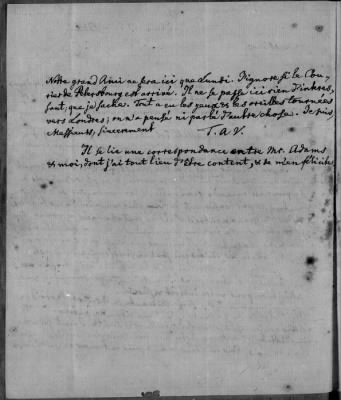 Notre grand Ami ne sera ici que Lundi. J'ignore si le Cou-
rier de Petersbourg est arrivé. Il ne se passe ici rien d'intéres-
sant, que je sache. Tout a eu les yeux & les oreilles tournées
vers Londres; on n'a pensé ni parlé d'autre chose. Je suis,
Messieurs, sincerement T. a V.
Il se lie une correspondance entre Mr. Adams
& moi, dont j'ai tout lieu d'être content, & de m'en féliciter